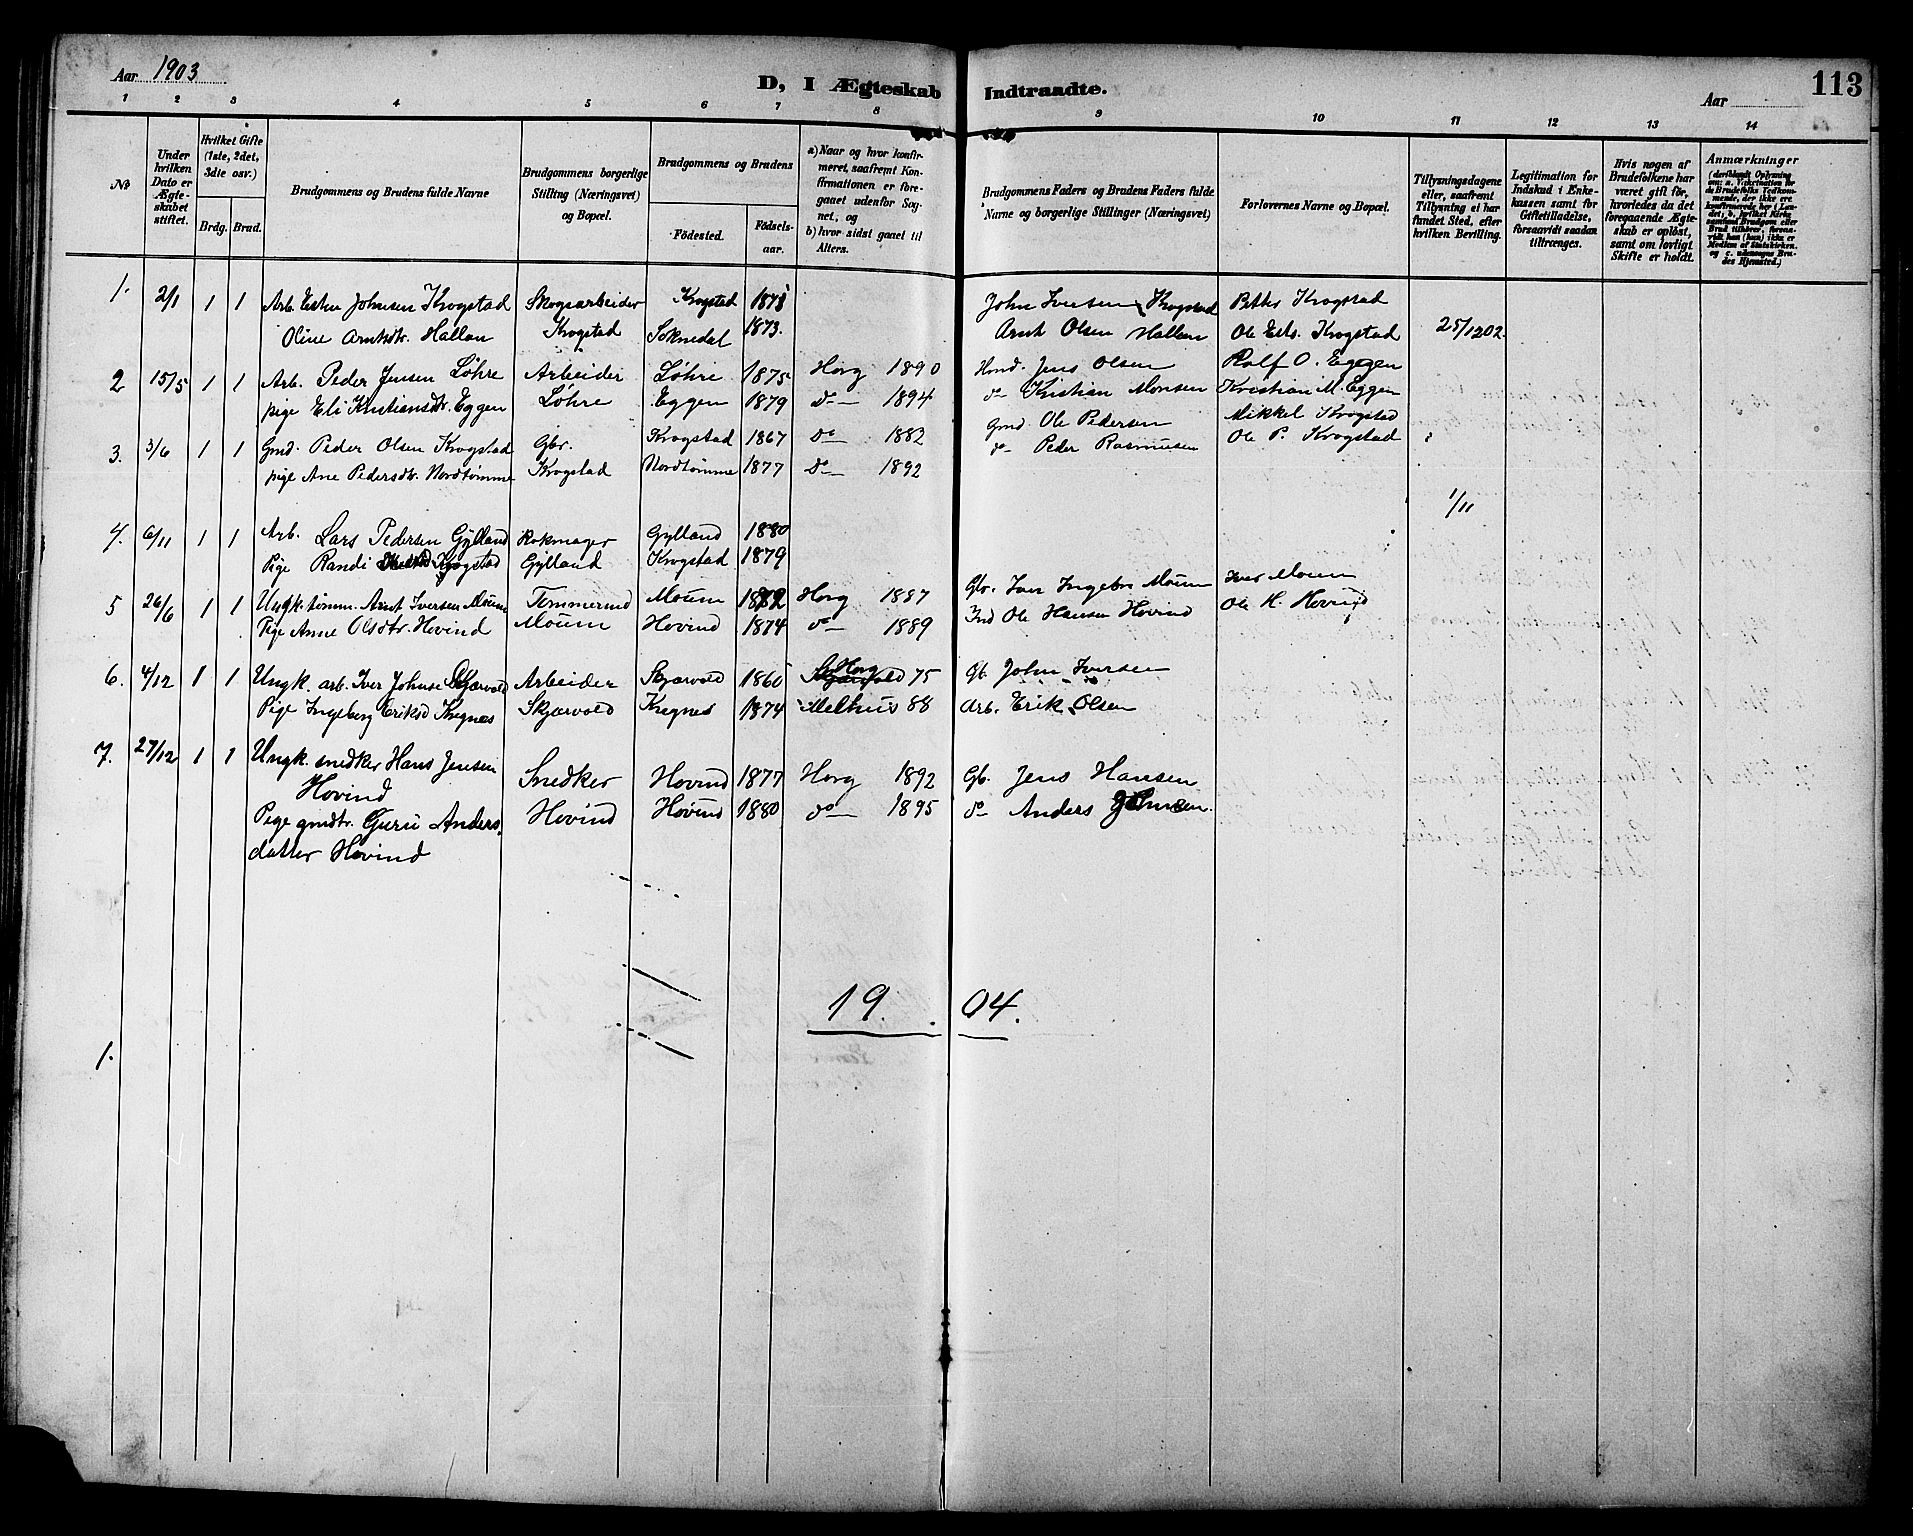 Aar 1903
D, I Ægteskab Indtraadte.
Aar
113
1 2 3 4 5 6 7 8 9 10 11 12 13 14
No
Under hvilken Dato er Ægteskabet stiftet.
Hvilket Gifte (1ste, 2det, 3die osv.)
Brdg. Brud.
Brudgommens og Brudens fulde Navne
Brudgommens borgerlige Stilling (Næringsvei) og Bopæl.
Brudgommens og Brudens
Fødested. Fødselsaar.
a) Naar og hvor konfirmeret, saafremt Konfirmationen er foregaaet udenfor Sognet, og
b) hvor sidst gaaet til Alters.
Brudgommens Faders og Brudens Faders fulde Navne og borgerlige Stillinger (Næringsvei)
Forlovernes Navne og Bopæl.
Tillysningsdagene eller, saafremt Tillysning ei har fundet Sted, efter hvilken Bevilling.
Legitimation for Indskud i Enkekassen samt for Giftetilladelse, forsaavidt saadan tiltrænges.
Hvis nogen af Brudefolkene har været gift før, hvorledes da det foregaaende Ægteskab er opløst, samt om lovligt Skifte er holdt.
Anmærkninger
1. 2/1 1 1 Arb. Johnsen Krogstad Skogsarbeider Krogstad 1871 John Iversen Krogstad Petter Krogstad
Oline Arntsdtr. Hallan Krogstad Soknedal 1873. Arnt Olsen Hallan Ole Krogstad 25/12 02.
2 15/5 1 1 Arb. Peder Jensen Løhre Arbeider Løhre 1875 Horg 1890 Jens Olsen Rolf O. Eggen
pige Eli Kristiansdtr. Eggen Løhre Eggen 1879 do 1894 do Kristian Monsen Kristian M. Eggen
3. 3/6 1 1 Gmd. Peder Olsen Krogstad Gbr. Krogstad 1867 do 1882 Gmd Ole Pedersen Mikkel Krogstad
pige Ane Pedersdtr. Nordtømme Krogstad Nordtømme 1877 do 1892 do Peder Rasmusen Ole P. Krogstad
1/11
4. 6/11 1 1 Arb. Lars Pedersen Gylland Gylland 1880
Pige Randi Krogstad Gylland Krogstad 1879
5 26/6 1 1 Ungk. tømm. Arnt Iversen Moum Tømmermd Moum 1872 Horg 1887 Gbr. Iver Ingebr. Moum Iver Moum
Pige Anne Olsdtr. Hovind Moum Hovind 1874 do 1889 Ind Ole Hansen Hovind Ole H. Hovind
6. 4/12 1 1 Ungk. arb. Iver Johnse Skjærvold Arbeider Skjærvold 1860 Horg 75 Gb. John Iversen
Pige Ingeborg Eriksd Kregnes Skjærvold Kregnes 1874 Melhus 88 Arb. Erik Olsen
7. 27/12 1 1 Ungk. snedker Hans Jensen
Hovind Snedker Hovind 1877 Horg 1892 Gb. Jens Hansen
Pige gmdtr. Guru Anders- Hovind Hovind 1880 do 1895 do Anders Johnsen.
datter Hovind
19. 04.
1.